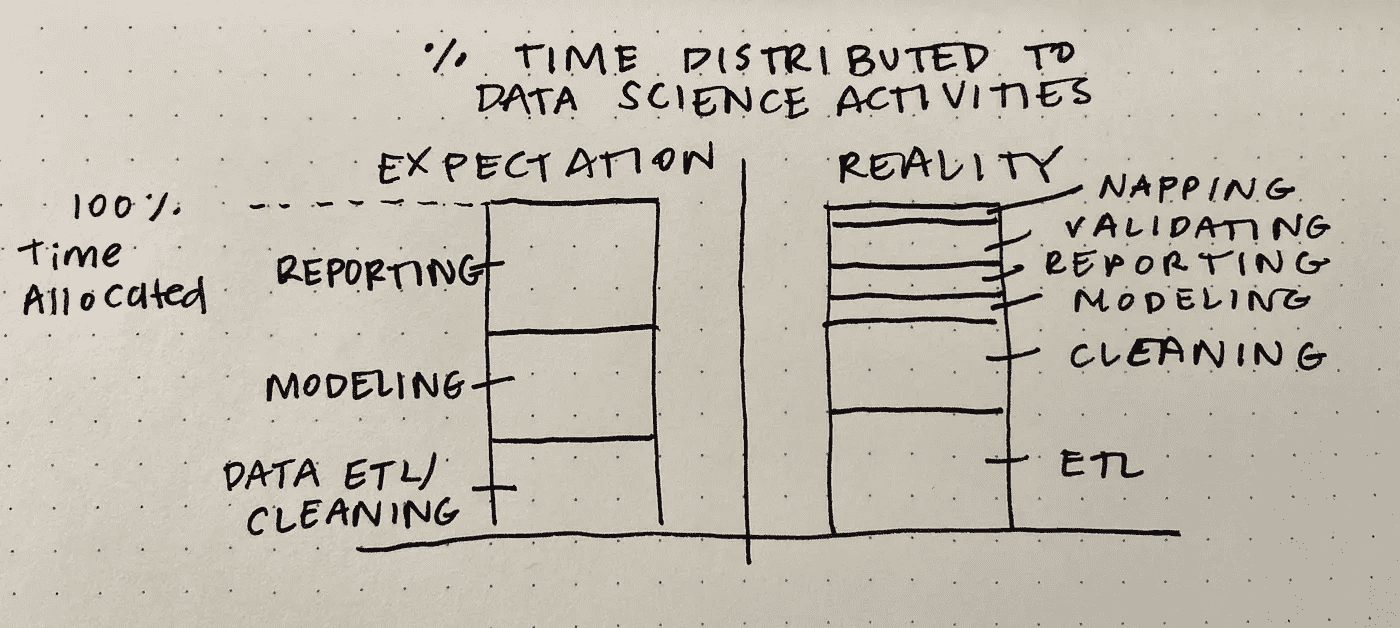 % TIME DISTRIBUTED TO
DATA SCIENCE ACTIVITIES
EXPECTATION
REALITY
100%
Time
Allocated
REPORTING
MODELING
DATA ETL/
CLEANING
NAPPING
VALIDATING
REPORTING
MODELING
CLEANING
ETL